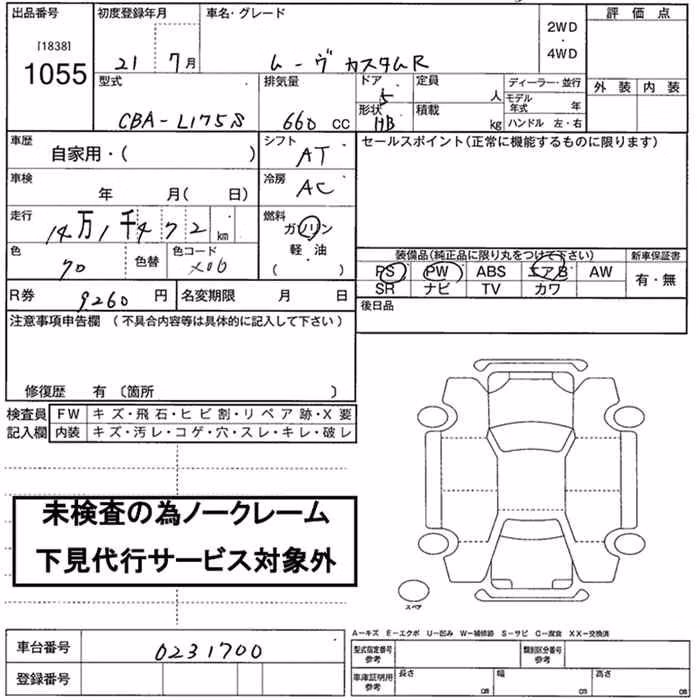 出品番号 初度登録年月 車名・グレード 評価点
[1838] 2WD
1055 21 7月 ムーヴ カスタムR ・ 4WD
型式 排気量 ドア 定員 ディーラー・並行 外装 内装
5 人 モデル年式 年
CBA-L175S 660 CC 形状 HB 積載 kg ハンドル 左・右
車歴 自家用・( ) シフト AT セールスポイント(正常に機能するものに限ります)
車検 年 月( 日) 冷房 AC
走行 14万1千472 km 燃料 ガソリン
色 70 色替 色コード X06 軽・油 ( )
装備品(純正品に限り丸をつけて下さい) 新車保証書
PS PW ABS エアB AW 有・無
SR ナビ TV カワ
R券 9260 円 名変期限 月 日 後日品
注意事項申告欄 (不具合内容等は具体的に記入して下さい)
修復歴 有 〔箇所 〕
検査員 FW キズ・飛石・ヒビ割・リペア跡・X要
記入欄 内装 キズ・汚レ・コゲ・穴・スレ・キレ・破レ
未検査の為ノークレーム
下見代行サービス対象外
スペア
A-キズ E-エクボ U-凹み W-補修跡 S-サビ C-腐食 XX-交換済
車台番号 0231700 型式指定番号 参考 類別区分番号 参考
登録番号 車庫証明用 参考 長さ cm 幅 cm 高さ cm